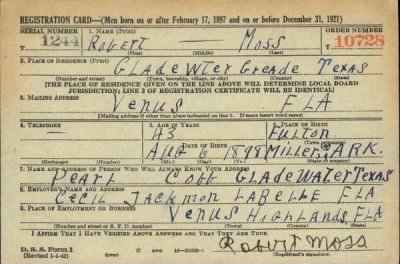 REGISTRATION CARD—(Men born on or after February 17, 1897 and on or before December 31, 1921)
SERIAL NUMBER 1. NAME (Print) ORDER NUMBER
T 1244 Robert — Moss T 10728
(First) (Middle) (Last)
2. PLACE OF RESIDENCE (Print)
GLADEWATER Texas
(Number and street) (Town, township, village, or city) (County) (State)
[THE PLACE OF RESIDENCE GIVEN ON THE LINE ABOVE WILL DETERMINE LOCAL BOARD
JURISDICTION; LINE 2 OF REGISTRATION CERTIFICATE WILL BE IDENTICAL]
3. MAILING ADDRESS
Venus FLA
[Mailing address if other than place indicated on line 2. If same insert word same]
4. TELEPHONE 5. AGE IN YEARS 6. PLACE OF BIRTH
— 43 Fulton
DATE OF BIRTH
Aug 6 1898 Miller ARK.
(Exchange) (Number) (Mo.) (Day) (Yr.) (Town or county) (State or country)
7. NAME AND ADDRESS OF PERSON WHO WILL ALWAYS KNOW YOUR ADDRESS
Cobb GLADEWATER Texas
8. EMPLOYER'S NAME AND ADDRESS
Cecil Jackmon LABELLE FLA
9. PLACE OF EMPLOYMENT OR BUSINESS
Venus HIGHLANDS FLA
(Number and street or R. F. D. number) (Town) (County) (State)
I AFFIRM THAT I HAVE VERIFIED ABOVE ANSWERS AND THAT THEY ARE TRUE.
D. S. S. Form 1
(Revised 1-1-42) (over)
Robert Moss